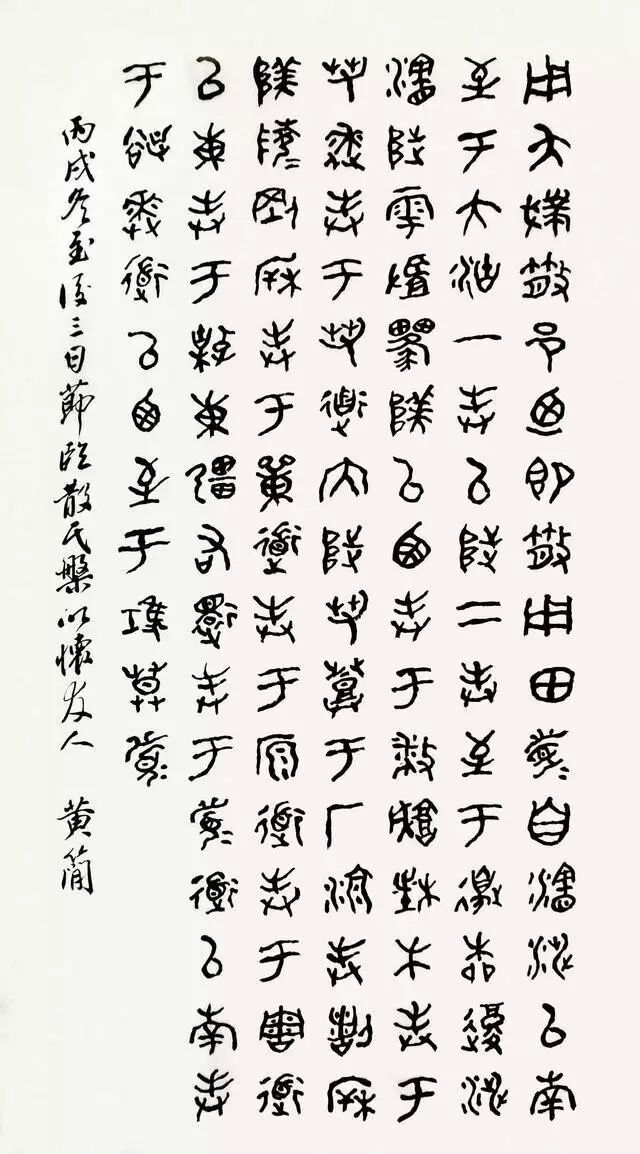 用夨撲散邑迺即散用田眉自瀗涉以南
至于大沽一封以陟二封至于邊柳復涉
瀗陟雩陕以西封于播城楮木封于
芻逨封于芻道内陟芻登于厂湶封剖㭁
陕陵剛㭁封于單道封于原道封于周道
以東封于棘東疆右還封于眉道以南封
于逨道以西至于堆莫眉
丙戌冬至後三日節臨散氏盤以懷友人 黃簡